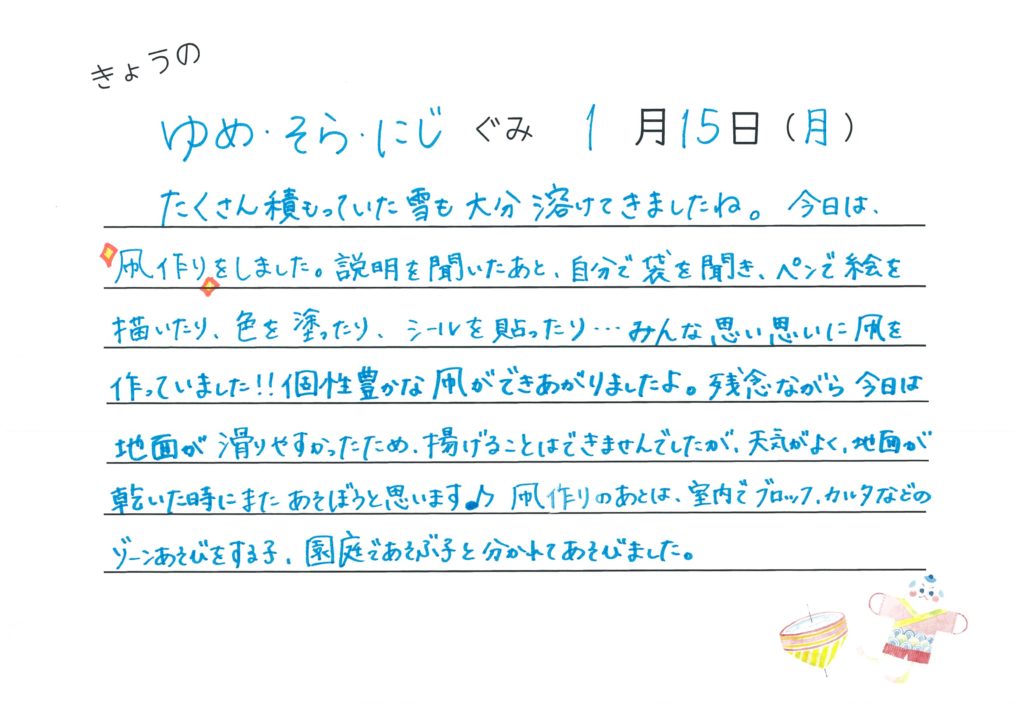 きょうの
ゆめ・そら・にじ ぐみ 1月15日(月)
たくさん積もっていた雪も大分溶けてきましたね。今日は、
凧作りをしました。説明を聞いたあと、自分で袋を聞き、ペンで絵を
描いたり、色を塗ったり、シールを貼ったり…みんな思い思いに凧を
作っていました!!個性豊かな凧ができあがりましたよ。残念ながら今日は
地面が滑りやすかったため、揚げることはできませんでしたが、天気がよく、地面が
乾いた時にまたあそぼうと思います♪凧作りのあとは、室内でブロック、カルタなどの
ゾーンあそびをする子、園庭であそぶ子と分かれてあそびました。